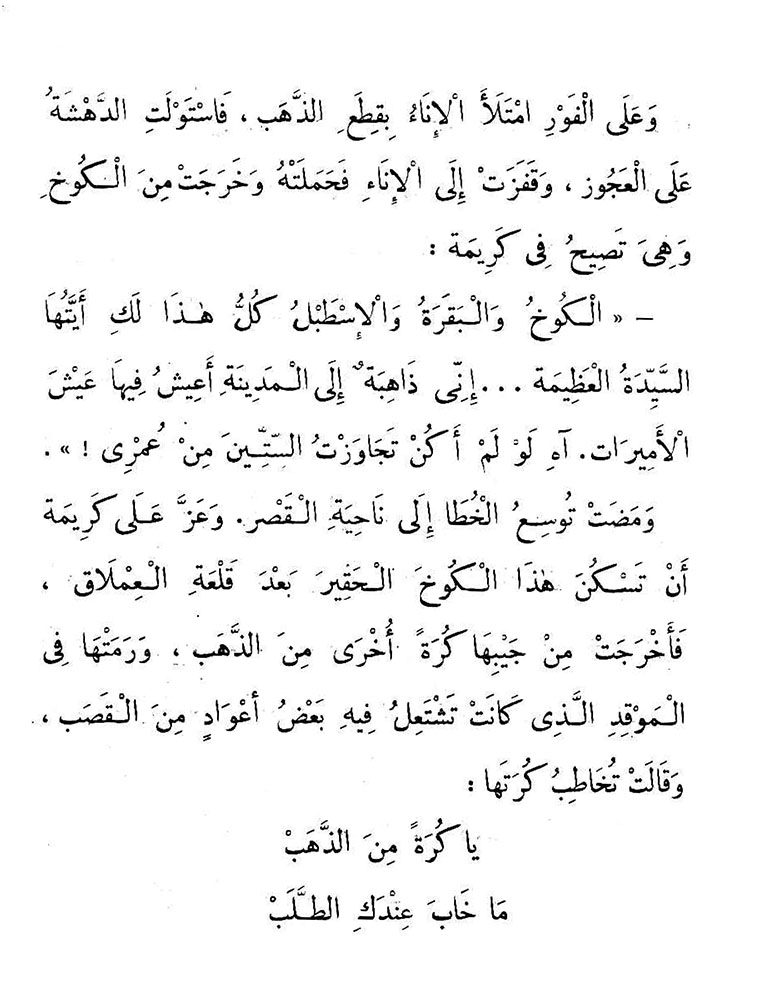 وَعَلَى الْفَوْرِ امْتَلَأَ الْإِنَاءُ بِقِطَعِ الذَّهَبِ ، فَاسْتَوْلَتِ الدَّهْشَةُ
عَلَى الْعَجُوزِ ، وَقَفَزَتْ إِلَى الْإِنَاءِ فَحَمَلَتْهُ وَخَرَجَتْ مِنَ الْكُوخِ
وَهِىَ تَصِيحُ فِى كَرِيمَة :
– « الْكُوخُ وَالْبَقَرَةُ وَالْإِسْطَبْلُ كُلُّ هٰذَا لَكِ أَيَّتُهَا
السَّيِّدَةُ الْعَظِيمَة ... إِنِّى ذَاهِبَةٌ إِلَى الْمَدِينَةِ أَعِيشُ فِيهَا عَيْشَ
الْأَمِيرَات. آهِ لَوْ لَمْ أَكُنْ تَجَاوَزْتُ السِّتِّينَ مِنْ عُمْرِى ! » .
وَمَضَتْ تُوسِعُ الْخُطَا إِلَى نَاحِيَةِ الْقَصْر. وَعَزَّ عَلَى كَرِيمَة
أَنْ تَسْكُنَ هٰذَا الْكُوخَ الْحَقِيرَ بَعْدَ قَلْعَةِ الْعِمْلَاق ،
فَأَخْرَجَتْ مِنْ جَيْبِهَا كُرَةً أُخْرَى مِنَ الذَّهَب ، وَرَمَتْهَا فِى
الْمَوْقِدِ الَّذِى كَانَتْ تَشْتَعِلُ فِيهِ بَعْضُ أَعْوَادٍ مِنَ الْقَصَب ،
وَقَالَتْ تُخَاطِبُ كُرَتَها :
يا كُرَةً مِنَ الذَّهَبْ
مَا خَابَ عِنْدَكِ الطَّلَبْ